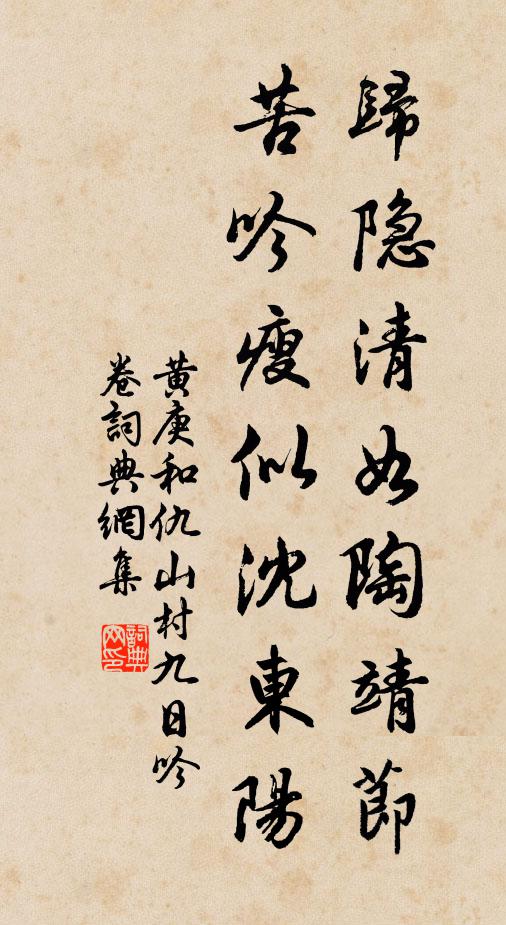 歸隐清如陶靖節
苦吟瘦似沈東陽
黄庚和仇山村九日吟
卷詞典網集
詞典网印